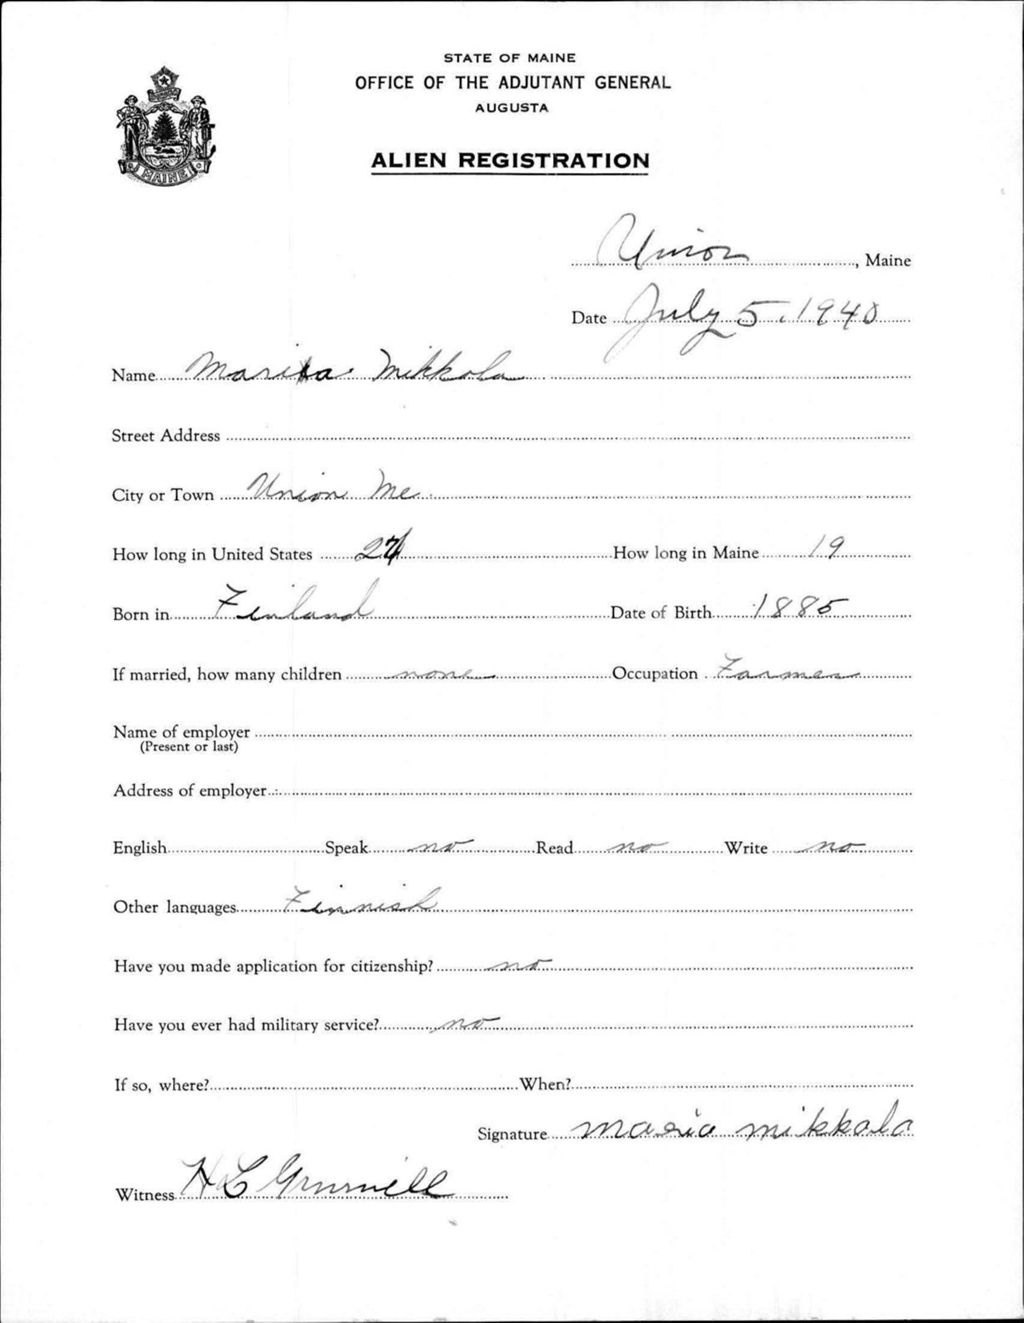 STATE OF MAINE
OFFICE OF THE ADJUTANT GENERAL
AUGUSTA
MAINE
ALIEN REGISTRATION
Union, Maine
Date July 5, 1940
Name Mikkola
Street Address
City or Town Union Me.
How long in United States How long in Maine 19
Born in Finland Date of Birth 1885
If married, how many children none Occupation Farmer
Name of employer
(Present or last)
Address of employer
English Speak no Read no Write no
Other languages Finnish
Have you made application for citizenship? no
Have you ever had military service? no
If so, where? When?
Signature maria mikkola
Witness H L Grinnell